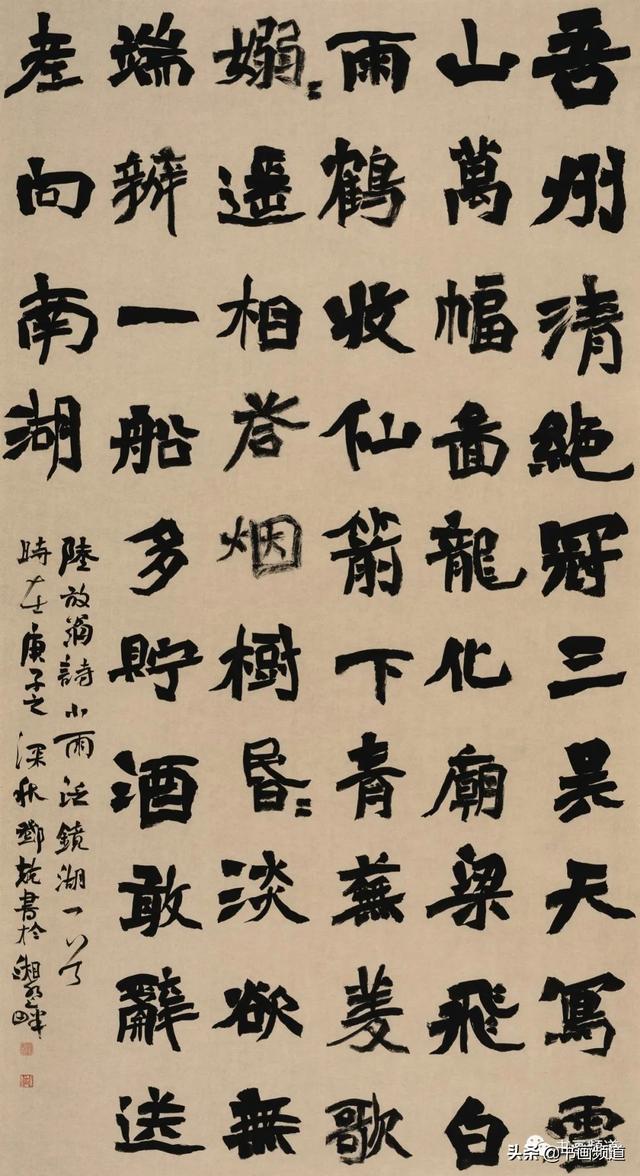 吾州清絶冠三吴天寫雲
山萬幅圖龍化廟梁飛白
雨鶴收仙箭下青蕪菱歌
嫋〻遥相答烟樹昏〻淡欲無
端辦一船多貯酒敢辭送
老向南湖
陸放翁詩小雨泛鏡湖一首
時在庚子之深秋鄧書於湘畔
书画频道
头条 @书画频道